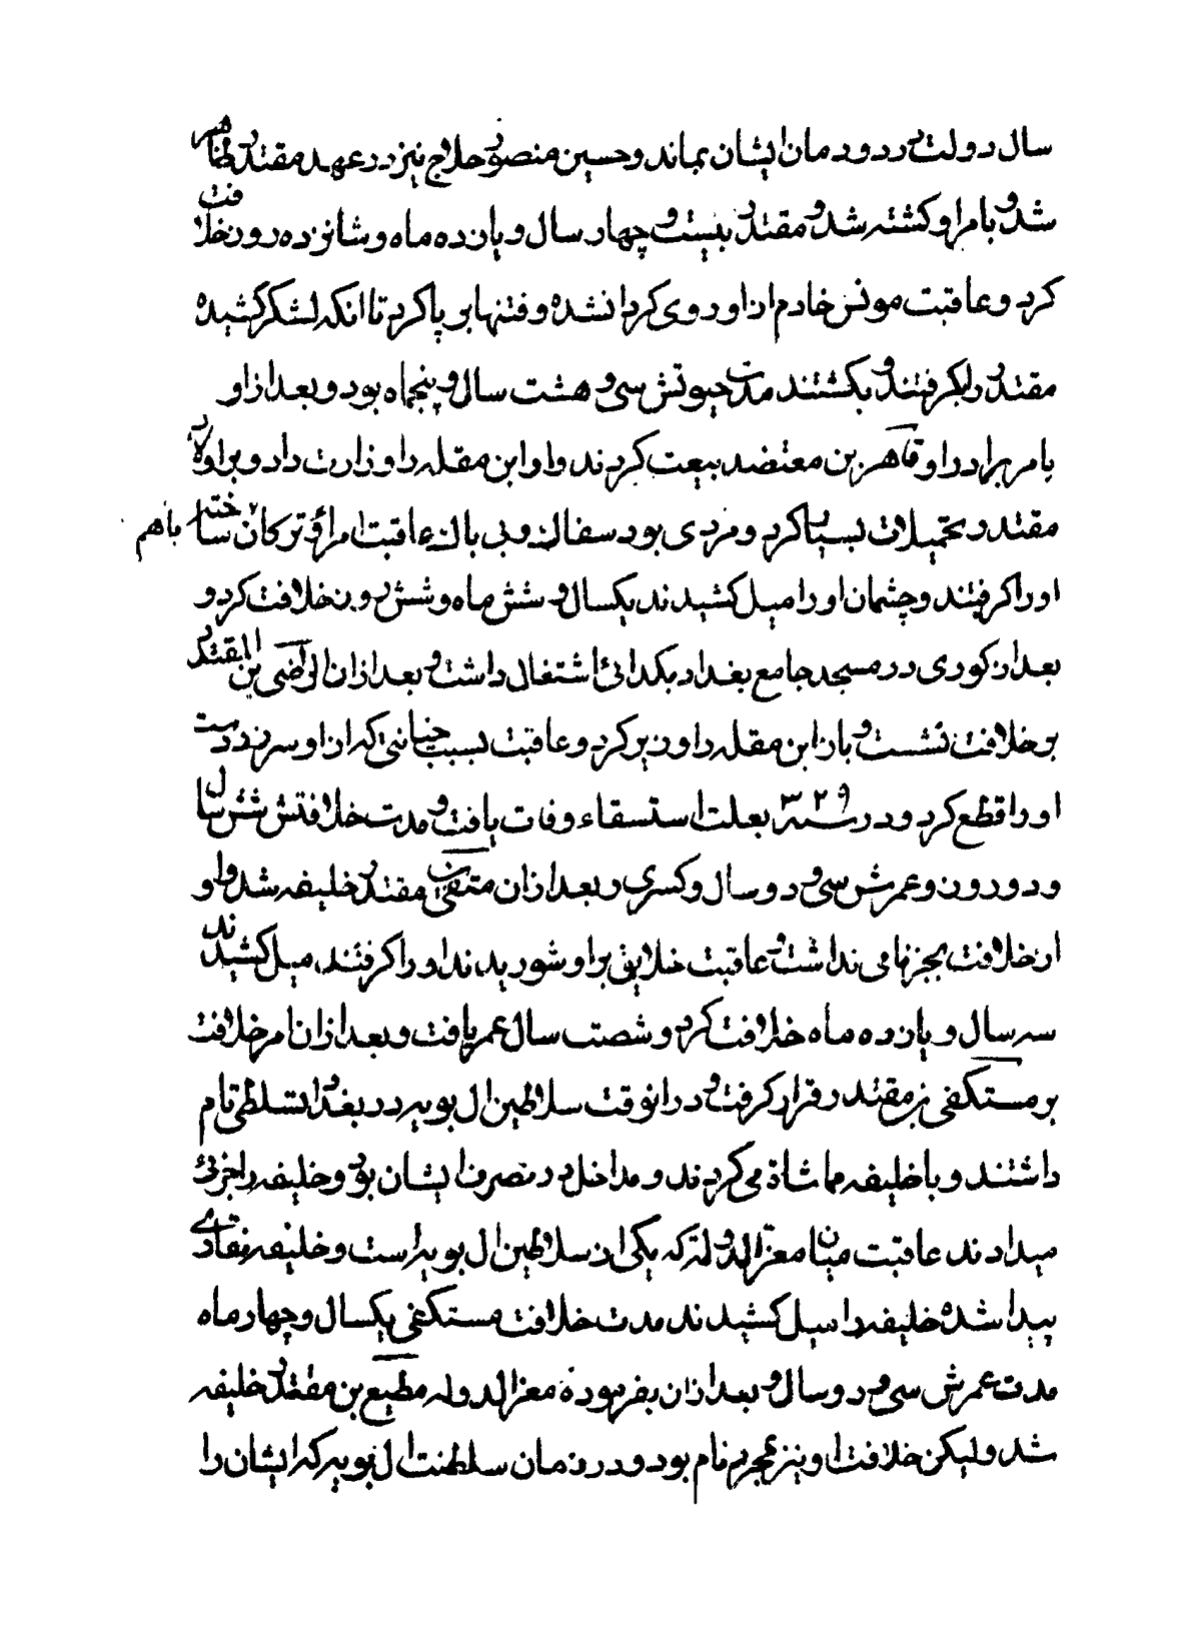 سال دولت در دودمان ایشان بماند و حسین منصور حلاج نیز در عهد مقتدر ظاهر
شد و بامر او کشته شد و مقتدر بیست و چهار سال و یازده ماه و شانزده روز خلافت
کرد و عاقبت مونس خادم از او روی کردانشده و فتنها بر پا کرد تا انکه لشکر کشیده
مقتدر را بکرفتند و بکشتند مدت حیوتش سی و هشت سال و پنجماه بود و بعد از او
با مر برادر او قاهر بن معتضد بیعت کردند و او ابن مقله را وزارت داد و بر اولاد
مقتدر تحمیلات بسیار کرد و مردی بود سفاک و بی باک عاقبت امرا و ترکان ساخته باهم
او را کرفتند و چشمان او را میل کشیدند یکسال و شش ماه و شش روز خلافت کرد و
بعد از کوری در مسجد جامع بغداد بکدائی اشتغال داشت و بعد از ان الراضی بن المقتدر
بر خلافت نشست و باز ابن مقله را وزیر کرد و عاقبت بسبب خیانتی که از او سر زد دست
او را قطع کرد و در سنه ۳۲۹ بعلت استسقاء وفات یافت و مدت خلافتش شش سال
و دو روز و عمرش سی و دو سال و کسری و بعد از ان متقی بن مقتدر خلیفه شد و او
از خلافت بجز نامی نداشت و عاقبت خلایق بر او شوریدند او را کرفتند، میل کشیدند
سه سال و یازده ماه خلافت کرد و شصت سال عمر یافت و بعد از ان امر خلافت
بر مستکفی بن مقتدر قرار کرفت و در انوقت سلاطین ال بویه در بغداد تسلطی تام
داشتند و با خلیفه مماشاة می کردند و مداخل در تصرف ایشان بود و خلیفه را جزئی
میدادند عاقبت میان معز الدوله که یکی از سلاطین ال بویه است و خلیفه نقاری
پیدا شده خلیفه را میل کشیدند مدت خلافت مستکفی یکسال و چهار ماه
مدت عمرش سی و دو سال و بعد از ان بفرموده معز الدوله مطیع بن مقتدر خلیفه
شد و لیکن خلافت او نیز بمجرد نام بود و در زمان سلطنت ال بویه که ایشان را